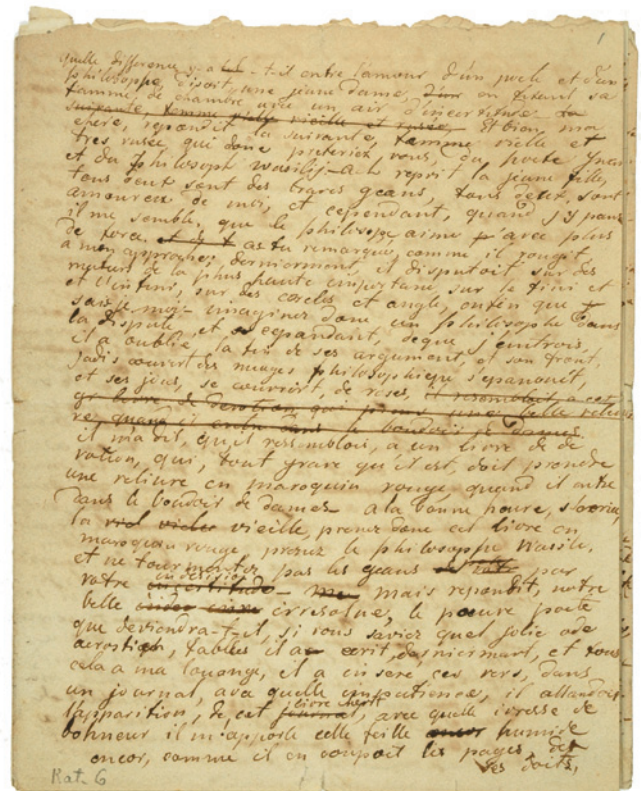 1
quelle difference y a - t-il entre l'amour d'un poete et d'un
philosoppe, disoit, une jeune dame, en fixant sa
famme, de chambre, avec un air d'incertitude
suivante, famme vieille et rusée, Et bien ma
chere, repondit la suivante, famme vielle et
tres rusée, qui donc preferiez, vous, du poete
et du philosoph Wasilij- a le reprit la jeune fille,
tous deux sont des braves geans, tous deux, sont
amoureux de moi, et cependant, quand j'y pans
il me semble, que le philosophe aime avec plus
de force. as tu remarqué, comme il rougit
a mon approche; derniermant, il disputoit sur des
matieurs de la plus haute importanse sur le fini et
et l'infini, sur des cercles et angle, enfin que
sais je moi- imaginez donc un philosophe dans
la dispute, et cepandant, deque j'entrois,
il a oublié, la fin de ses argument, et son front,
jadis couvert des nuages philosophique s'epanouit,
et ses joues, se couvrirt, de roses, il resembloit, a cet
livre de devotion qui prend une belle reliu
re, quand il entre dans le boudoir de dames.
il m'a dit, qu'il ressemblois, a un livre de de
votion, qui, tout grave qu'il est, doit prendre
une reliure en maroquin rouge, quand il entre
dans le boudoir de dames- a la bonne heure, s'ecria,
la vieille, prenez donc cet livre en
maroquin rouge, prenez le philosoppe Wasile,
et ne tourmentez pas les geans par
votre indecision - mais repondit, notre
belle irresolue, le pauvre poete
que deviendra-t-il, si vous saviez quel jolie ode
acrostich, fables il a ecrit, derniermant, et tous
cela a ma louange, il a insere ces vers, dans
un journal, avec quelle impatience, il attandoit
l'apparition, de cet journal, livre cheri avec quelle ivresse de
bohneur il m'apporte celle feille humide
encor, comme il en coupoit les pages, des
ses doits,
Kat. 6